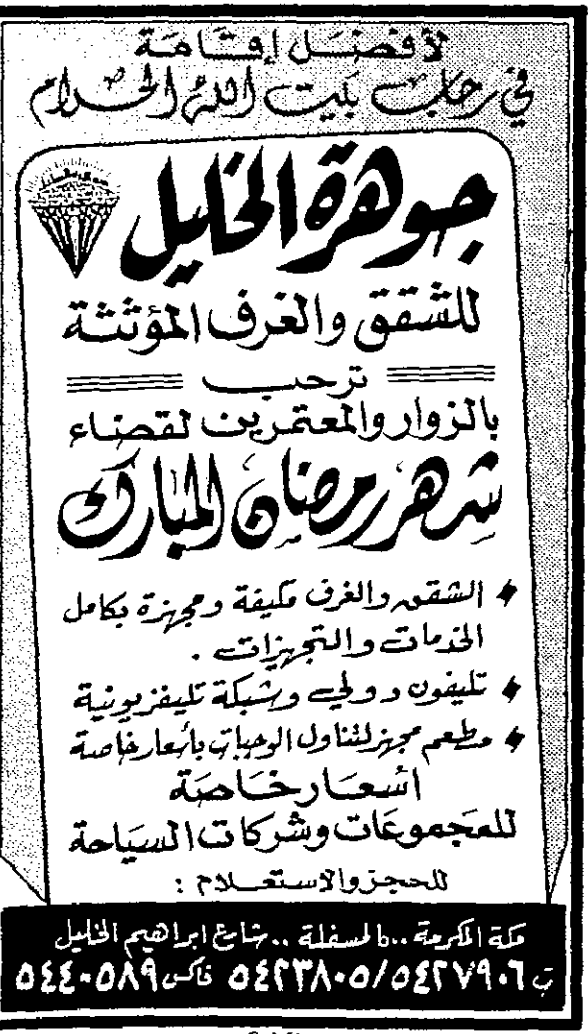 لأفضل إقامة
في رحاب بيت الله الحرام
جوهرة الخليل
للشقق والغرف المؤثثة
ترحب
بالزوار والمعتمرين لقضاء
شهر رمضان المبارك
الشقق والغرف مكيفة ومجهزة بكامل
الخدمات والتجهيزات .
تليفون دولي وشبكة تليفزيونية
مطعم مجهز لتناول الوجبات بأسعار خاصة
أسعار خاصة
للمجموعات وشركات السياحة
للحجز والاستعلام :
مكة المكرمة .. المسفلة .. شارع ابراهيم الخليل
ت ٥٤٢٧٩٠٦/٥٤٢٣٨٠٥ فاكس ٥٤٤٠٥٨٩